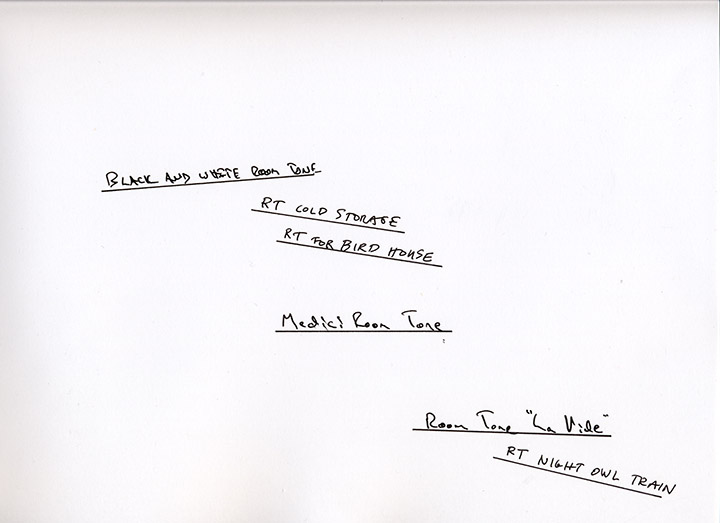 BLACK AND WHITE ROOM TONE
RT COLD STORAGE
RT FOR BIRD HOUSE
Medici Room Tone
Room Tone "La Vide"
RT NIGHT OWL TRAIN